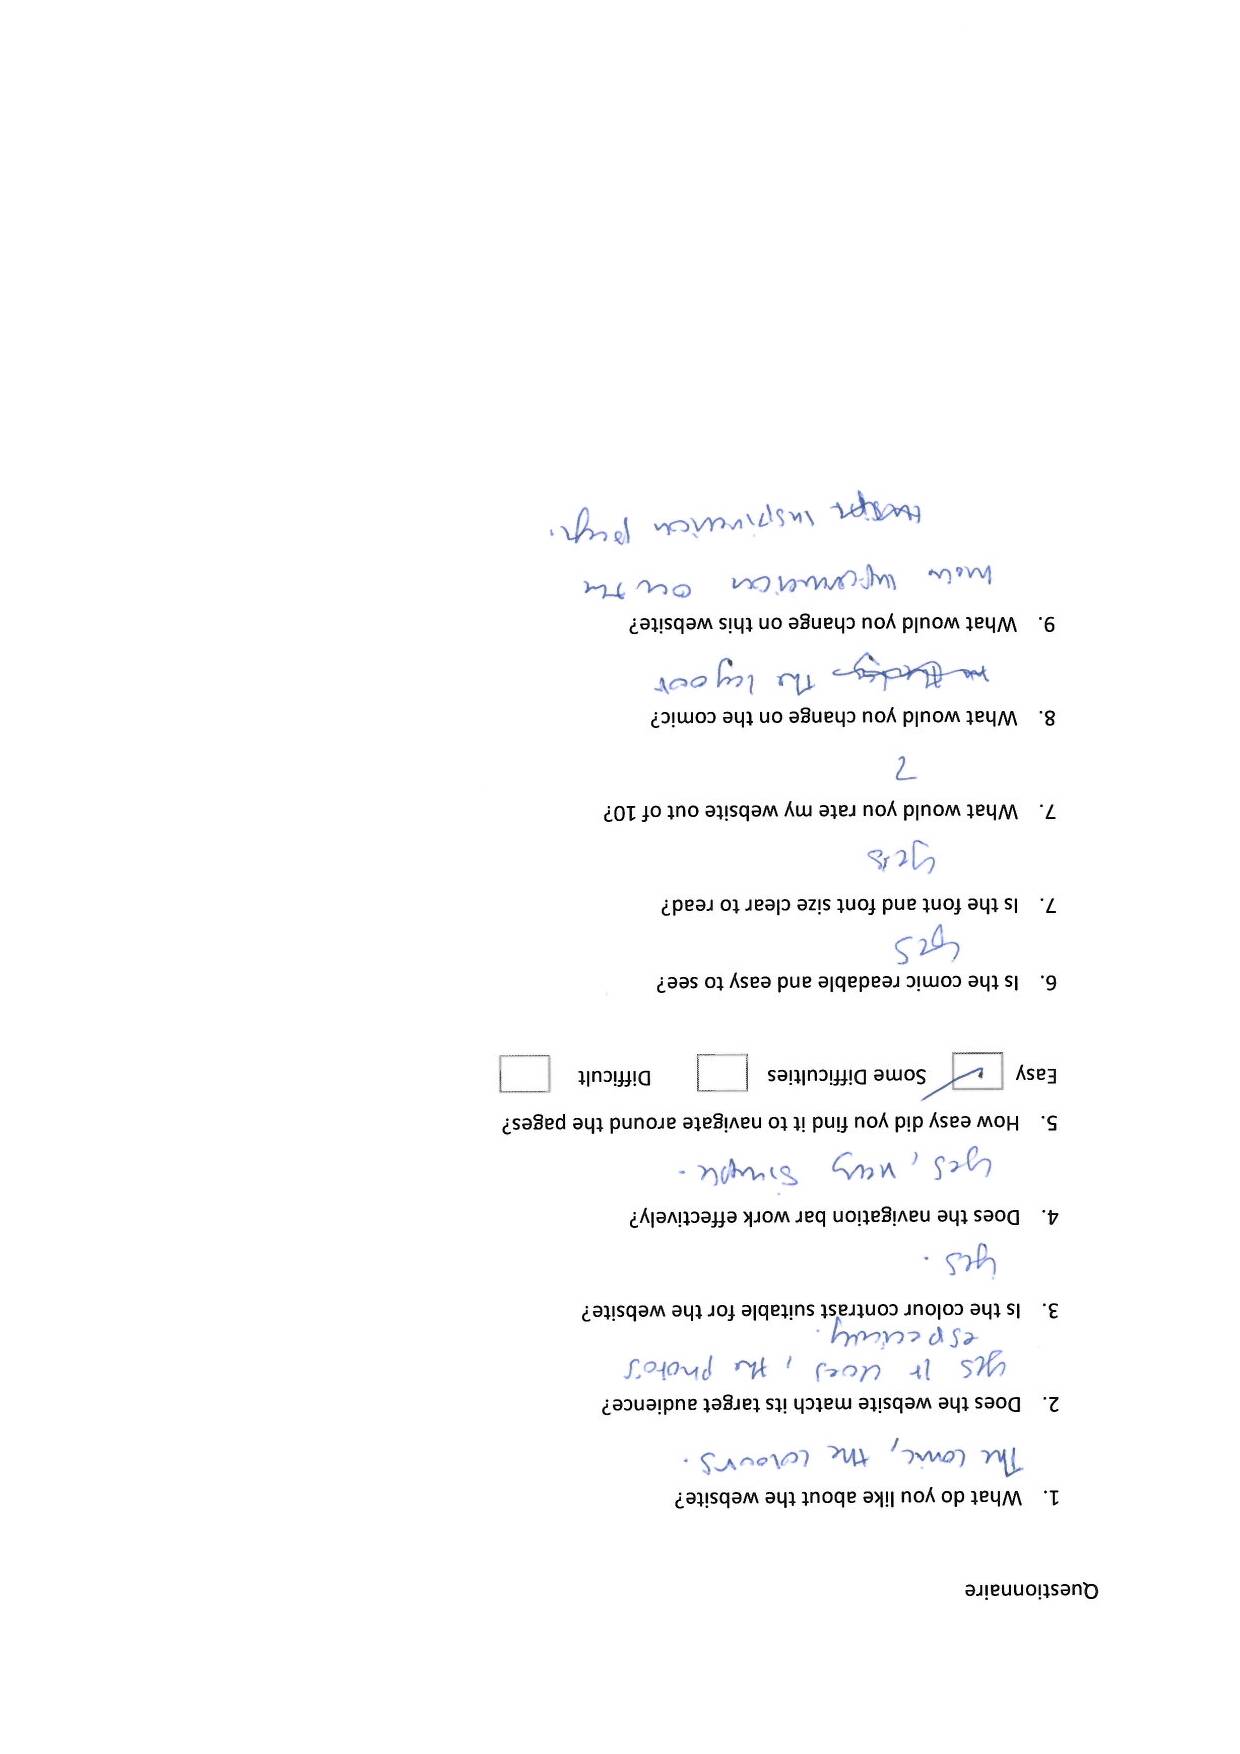 Questionnaire
1. What do you like about the website?
The comic, the colours.
2. Does the website match its target audience?
yes it does, the photos
especially.
3. Is the colour contrast suitable for the website?
yes.
4. Does the navigation bar work effectively?
yes, very simple.
5. How easy did you find it to navigate around the pages?
Easy Some Difficulties Difficult
6. Is the comic readable and easy to see?
yes
7. Is the font and font size clear to read?
yes
7. What would you rate my website out of 10?
8. What would you change on the comic?
The layout
9. What would you change on this website?
more information on the
inspiration page.